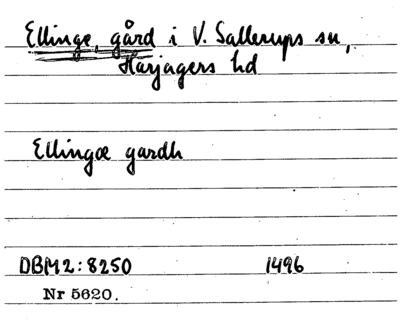 Ellinge, gård i V. Sallerups sn,
Harjagers hd
Ellingæ gardh
DBM2:8250 1496
Nr 5620.